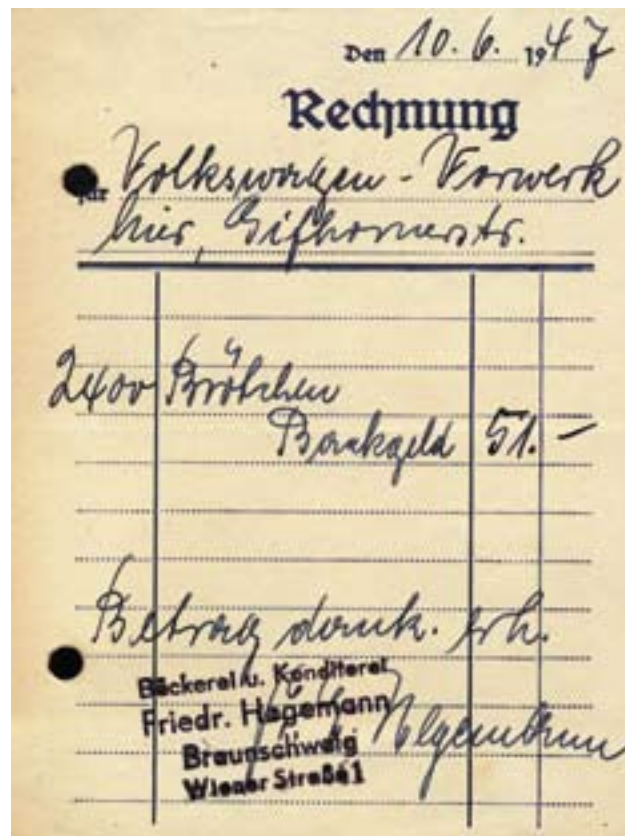 Den 10. 6. 1947
Rechnung
für Volkswagen - Vorwerk
hier, Gifhornerstr.
2400 Brötchen
Backgeld 51.-
Betrag dank. erh.
Bäckerei u. Konditorei
Friedr. Hagemann
Braunschweig
Wiener Straße 1